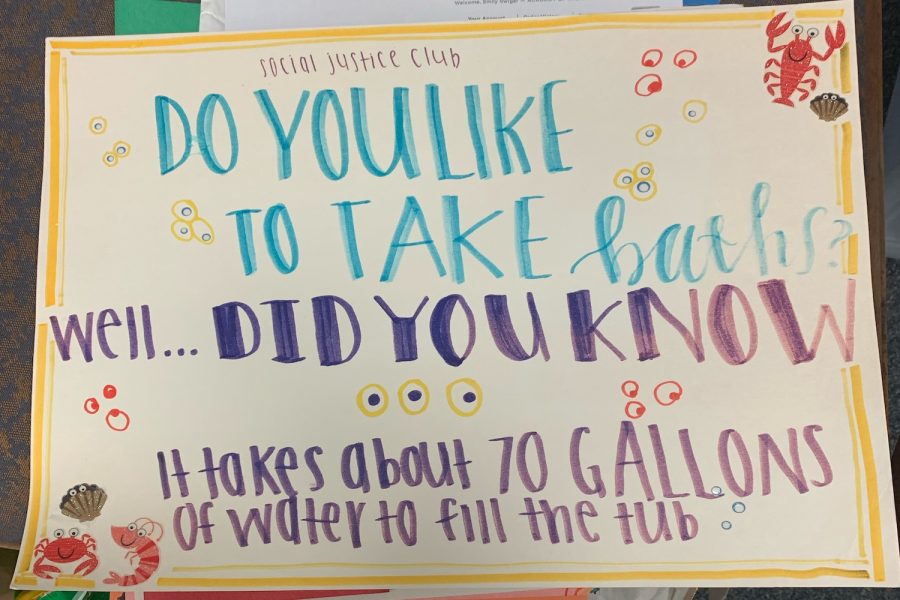 Welcome, Emily
Your Account
social justice club
DO YOU LIKE
TO TAKE baths?
well... DID YOU KNOW
It takes about 70 GALLONS
of water to fill the tub